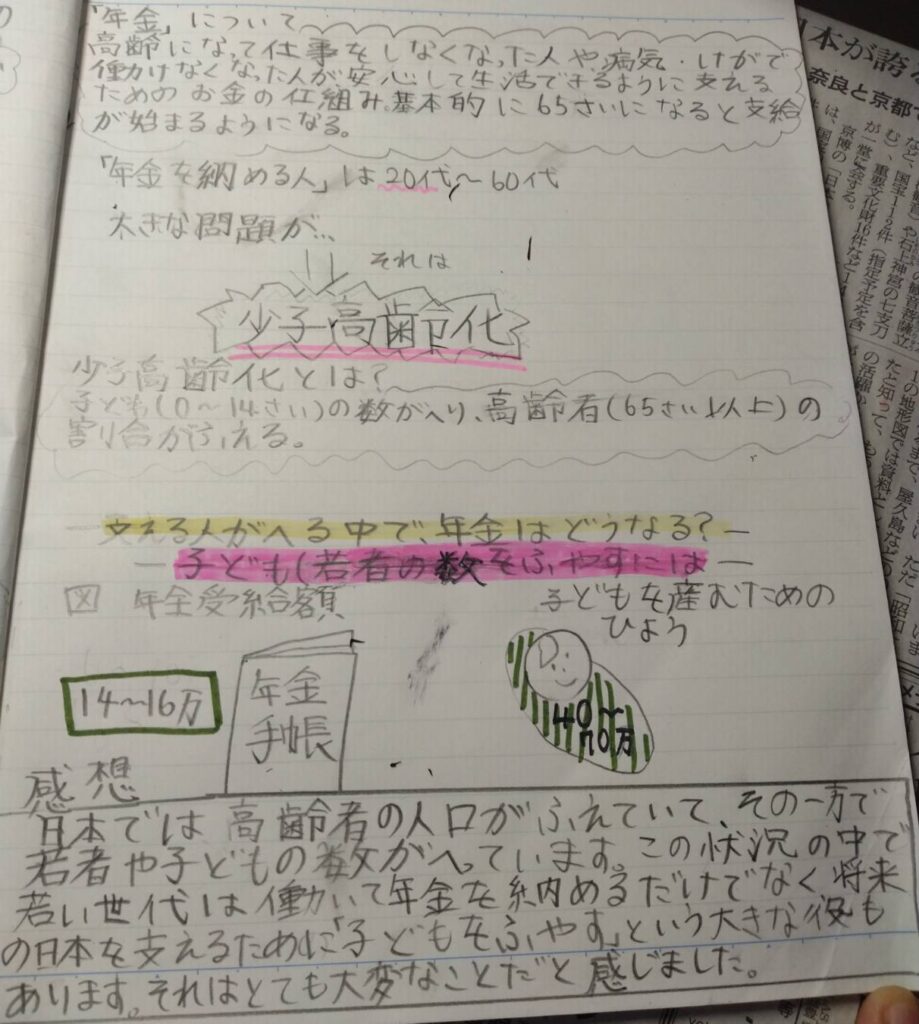 「年金」について
高齢になって仕事をしなくなった人や病気・けがで
働けなくなった人が安心して生活できるように支える
ためのお金の仕組み。基本的に65さいになると支給
が始まるようになる。
「年金を納める人」は20代～60代
大きな問題が…
それは
少子高齢化
少子高齢化とは？
子ども(0～14さい)の数がへり、高齢者(65さい以上)の
割り合がふえる。
―支える人がへる中で、年金はどうなる？―
―子ども(若者の数をふやすには―
図 年金受給額
子どもを産むための
ひよう
14～16万
年金
手帳
40～
70万
感想
日本では高齢者の人口がふえていて、その一方で
若者や子どもの数がへっています。この状況の中で
若い世代は働いて年金を納めるだけでなく将来
の日本を支えるために「子どもをふやす」という大きな役も
あります。それはとても大変なことだと感じました。
本が誇
奈良と京都